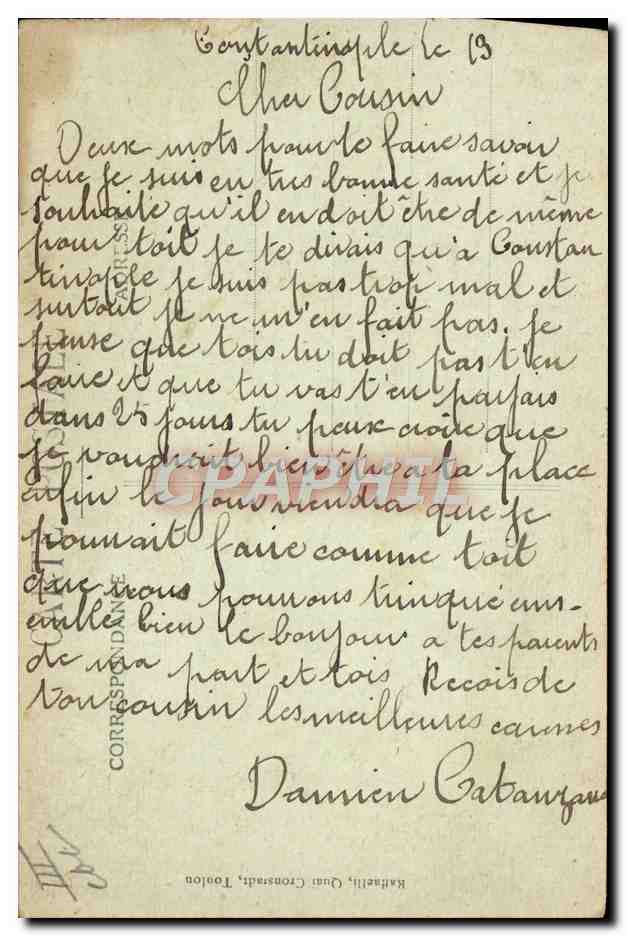 Constantinople le 13
Cher Cousin
Deux mots pour le faire savoir
que je suis en tres bonne santé et je
souhaite qu'il en doit être de même
pour toit je te dirais qu'a Constan
tinople je suis pas trop mal et
surtout je ne m'en fait pas. je
pense que tois tu doit pas t'en
faire et que tu vas t'en parfais
dans 25 jours tu peux croire que
je voudrait bien être a ta place
enfin le jour viendra que je
pourrait faire comme toit
que nous pourrons trinqué ens-
emble bien le bonjour a tes parents
de ma part et tois Recois de
ton cousin les meilleures caresses
Damien Catanzano
CARTE POSTALE
CORRESPONDANCE
ADRESSE
CPAPHIL
Raffaelli, Quai Cronstadt, Toulon
III